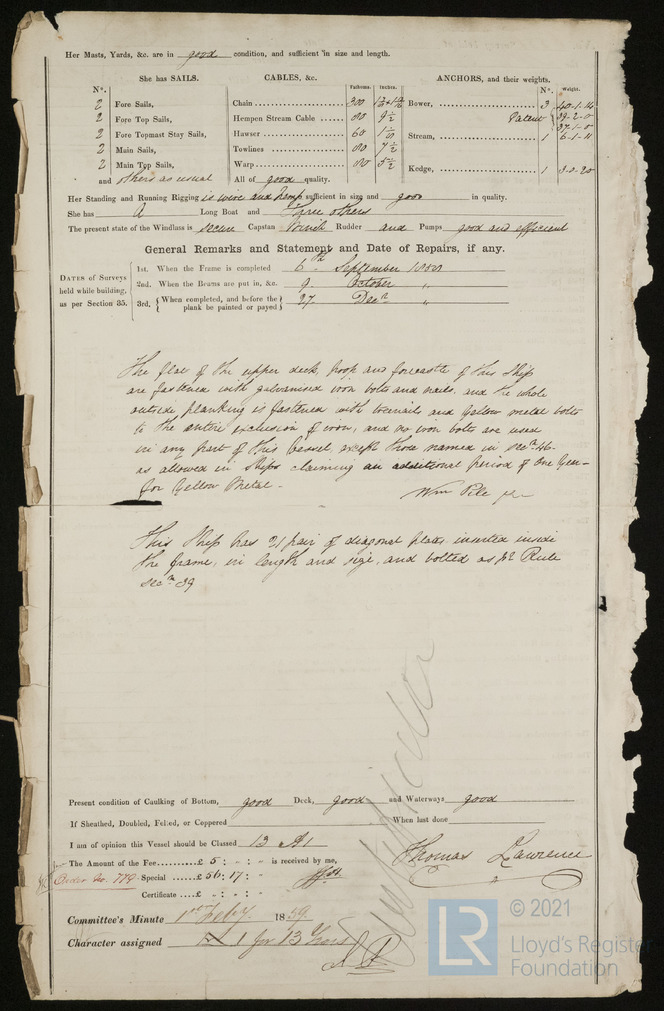 Her Masts, Yards, &c. are in good condition, and sufficient in size and length.
She has SAILS.
CABLES, &c.
Fathoms. Inches.
ANCHORS, and their weights.
Nº. Weight.
Nº.
2 Fore Sails,
2 Fore Top Sails,
2 Fore Topmast Stay Sails,
2 Main Sails,
2 Main Top Sails,
and others as usual
Chain 300
Hempen Stream Cable 9½
Hawser 60
Towlines 7½
Warp
All of good quality.
Bower, 3 40-1-14
Patent 39-2-0
37-1-0
Stream, 1 6-1-11
Kedge, 1 3-0-20
Her Standing and Running Rigging is wire and hemp sufficient in size and good in quality.
She has A Long Boat and Three others
The present state of the Windlass is secure Capstan Winch Rudder and Pumps good and efficient
General Remarks and Statement and Date of Repairs, if any.
DATES of Surveys held while building, as per Section 35.
1st. When the Frame is completed 6th September 1858
2nd. When the Beams are put in, &c. 9. October "
3rd, { When completed, and before the plank be painted or payed } 27. Decr "
The flat of the upper deck, poop and forecastle of this Ship
are fastened with galvanised iron bolts and nails, and the whole
outside planking is fastened with treenails and Yellow metal bolts
to the entire exclusion of iron, and no iron bolts are used
in any part of this Vessel, except those named in secn. 46-
as allowed in Ships claiming an additional period of One Year
for Yellow Metal -
Wm Pile jnr
This Ship has 21 pair of diagonal plates inserted inside
the frame, in length and size, and bolted as pr Rule
secn 39
Present condition of Caulking of Bottom, good Deck, good and Waterways good
If Sheathed, Doubled, Felted, or Coppered When last done
I am of opinion this Vessel should be Classed 13 A1
Thomas Lawrence
The Amount of the Fee £ 5 : - : - is received by me,
Order No. 779. Special £56:17: -
Certificate £ - : - : -
Committee's Minute 1st Feby 1859.
Character assigned A 1 for 13 Years
© 2021
LR
Lloyd's Register
Foundation